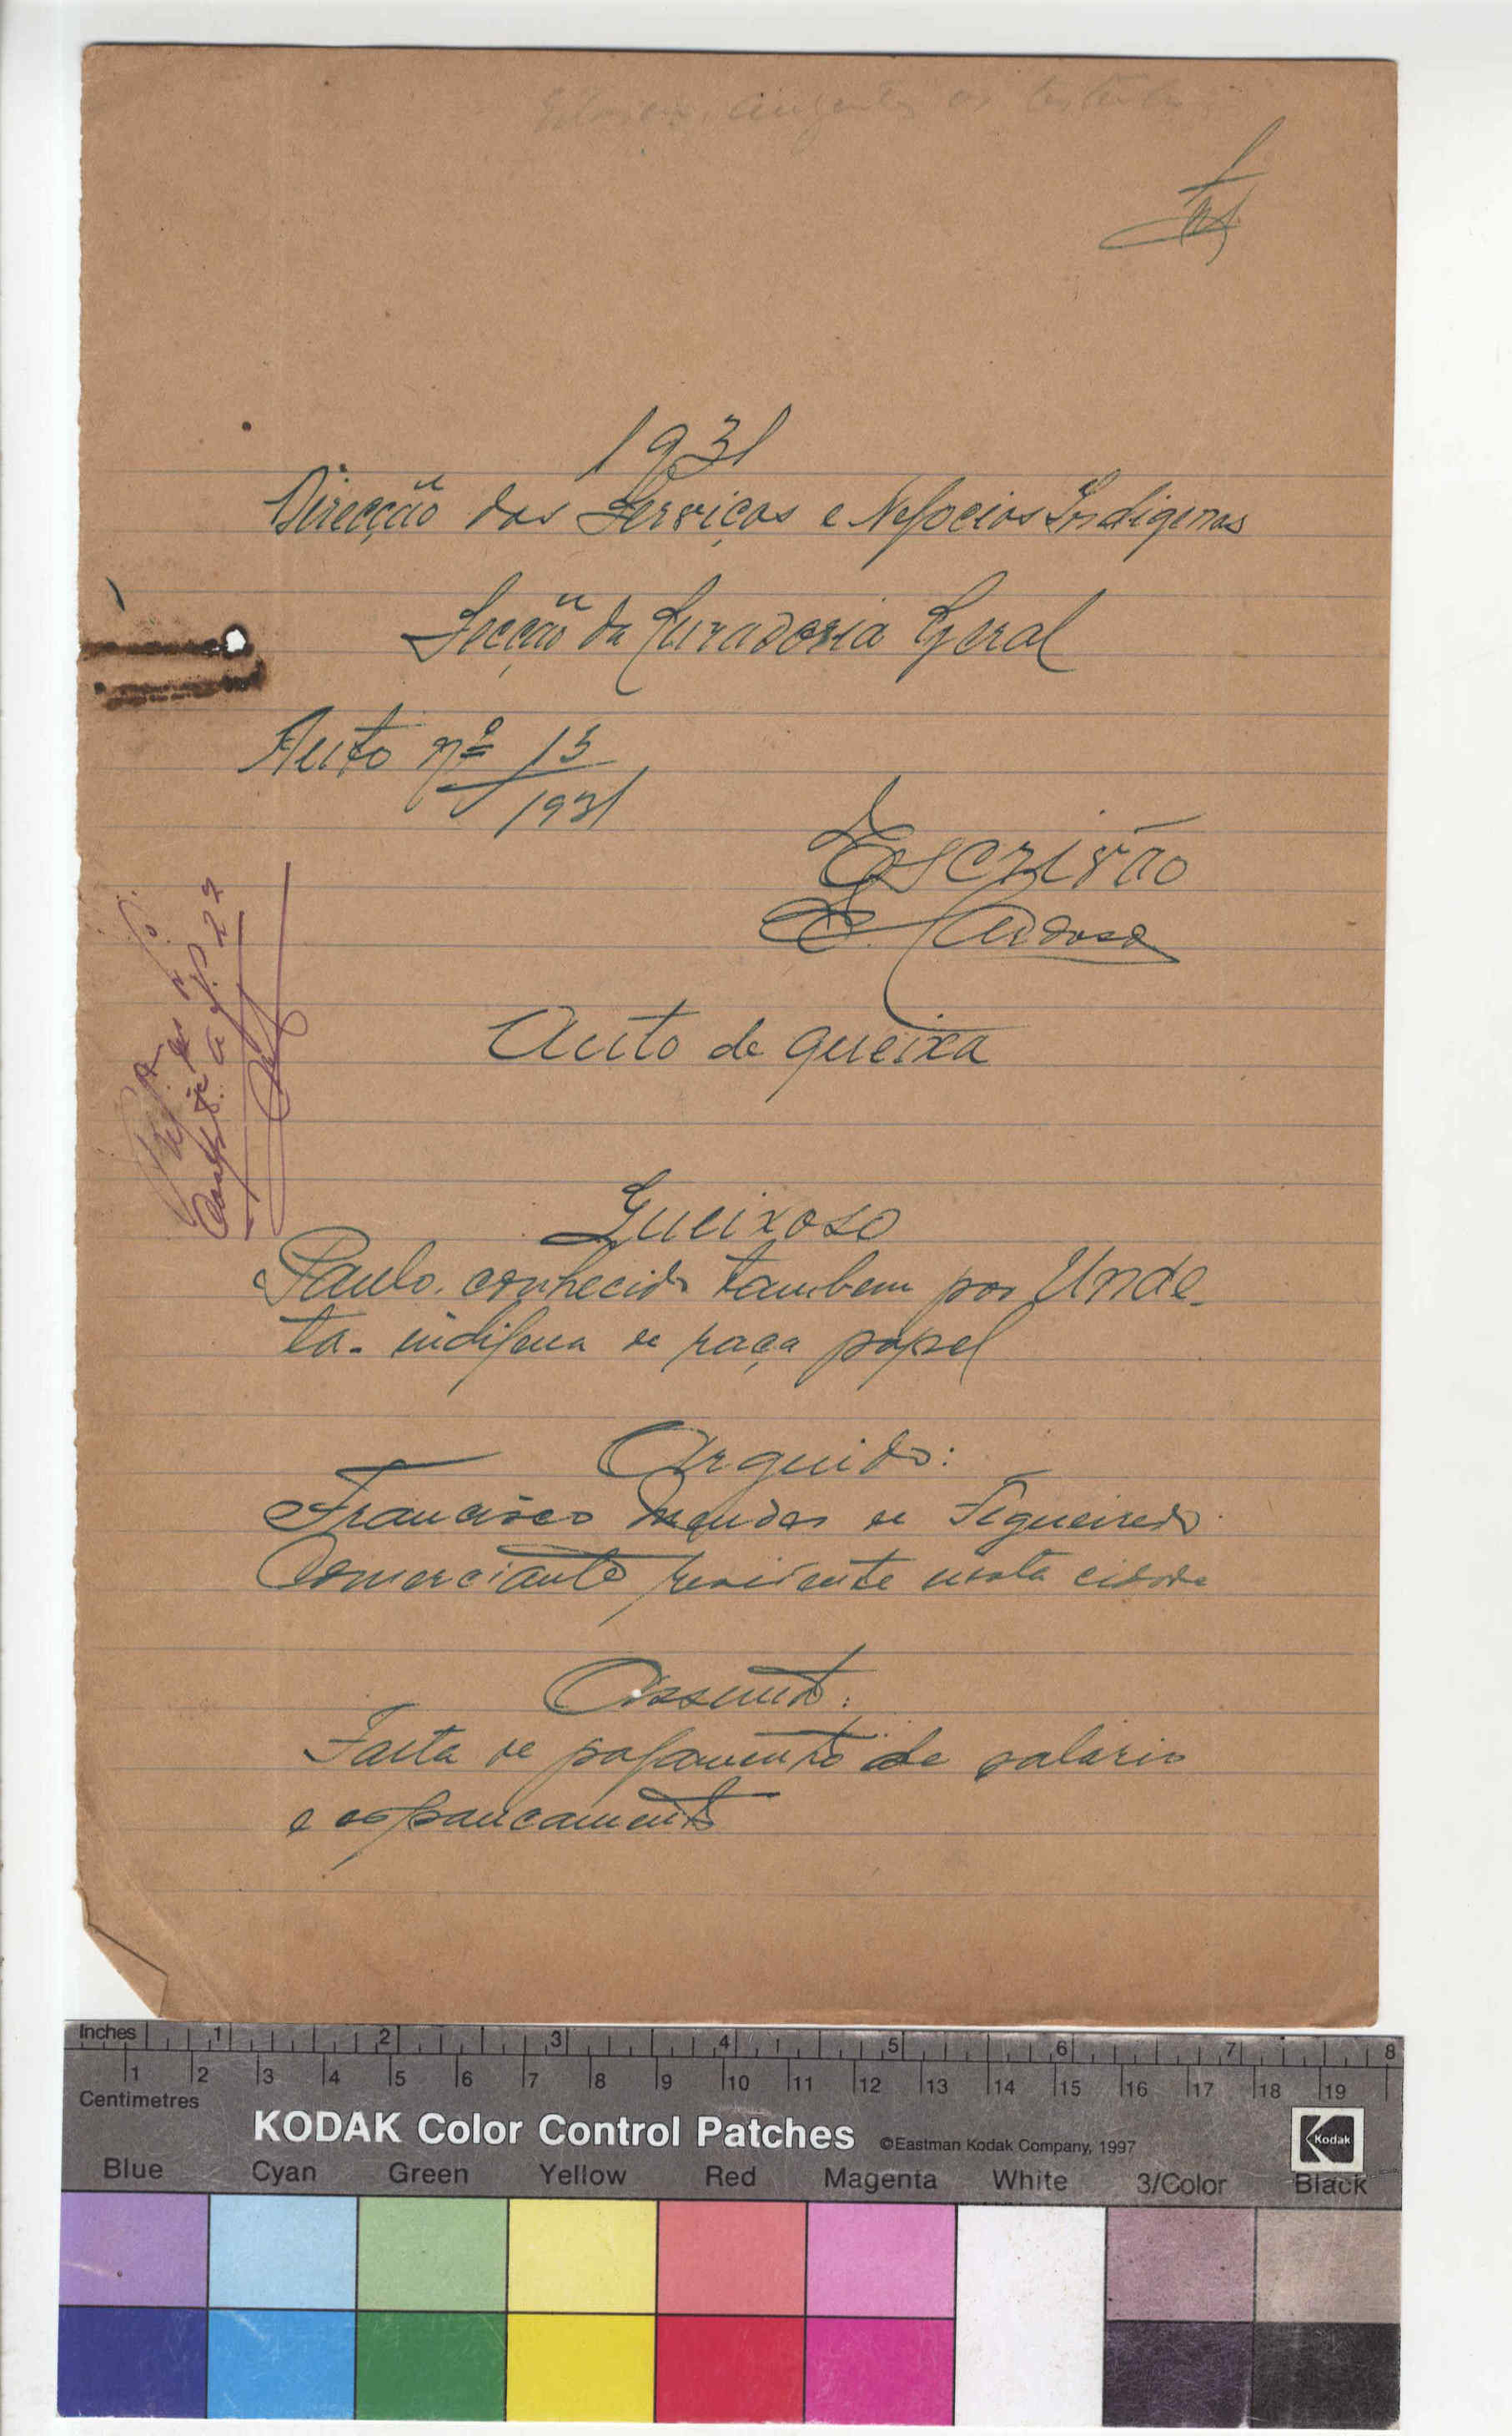 1931
Direcção dos Serviços e Negocios Indigenas
Secção da Curadoria Geral
Auto nº 13
1931
Escrivão
E. Cardoso
Auto de queixa
Queixoso
Paulo. conhecido tambem por Unde-
ta. indigena de raça papel
Arguido:
Francisco Mendes de Figueiredo.
Comerciante residente nesta cidade
Assunto:
Falta de pagamento de salario
e espancamento
Inches 1 2 3 4 5 6 7 8
1 2 3 4 5 6 7 8 9 10 11 12 13 14 15 16 17 18 19
Centimetres
KODAK Color Control Patches ©Eastman Kodak Company, 1997 Kodak
Blue Cyan Green Yellow Red Magenta White 3/Color Black